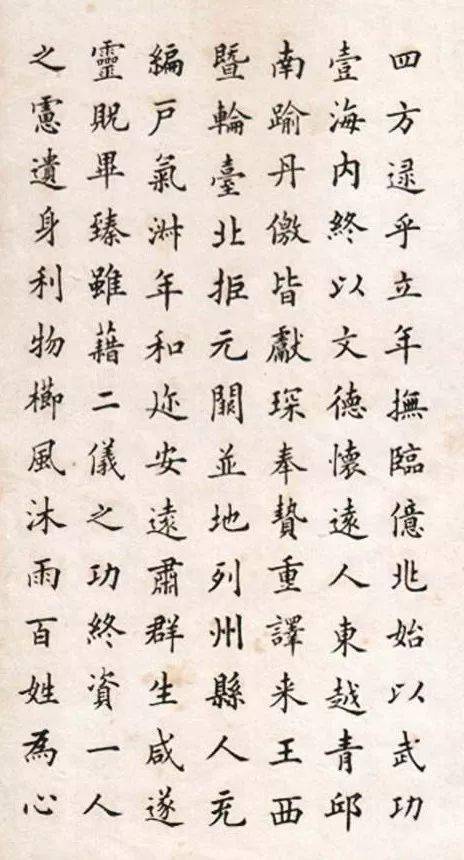 四方逯乎立年撫臨億兆始以武功
壹海内終以文德懷遠人東越青邱
南踰丹徼皆獻琛奉贄重譯来王西
暨輪臺北拒元闕並地列州縣人充
編戸氣淋年和迩安遠肅群生咸遂
靈貺畢臻雖藉二儀之功終資一人
之慮遺身利物櫛風沐雨百姓為心